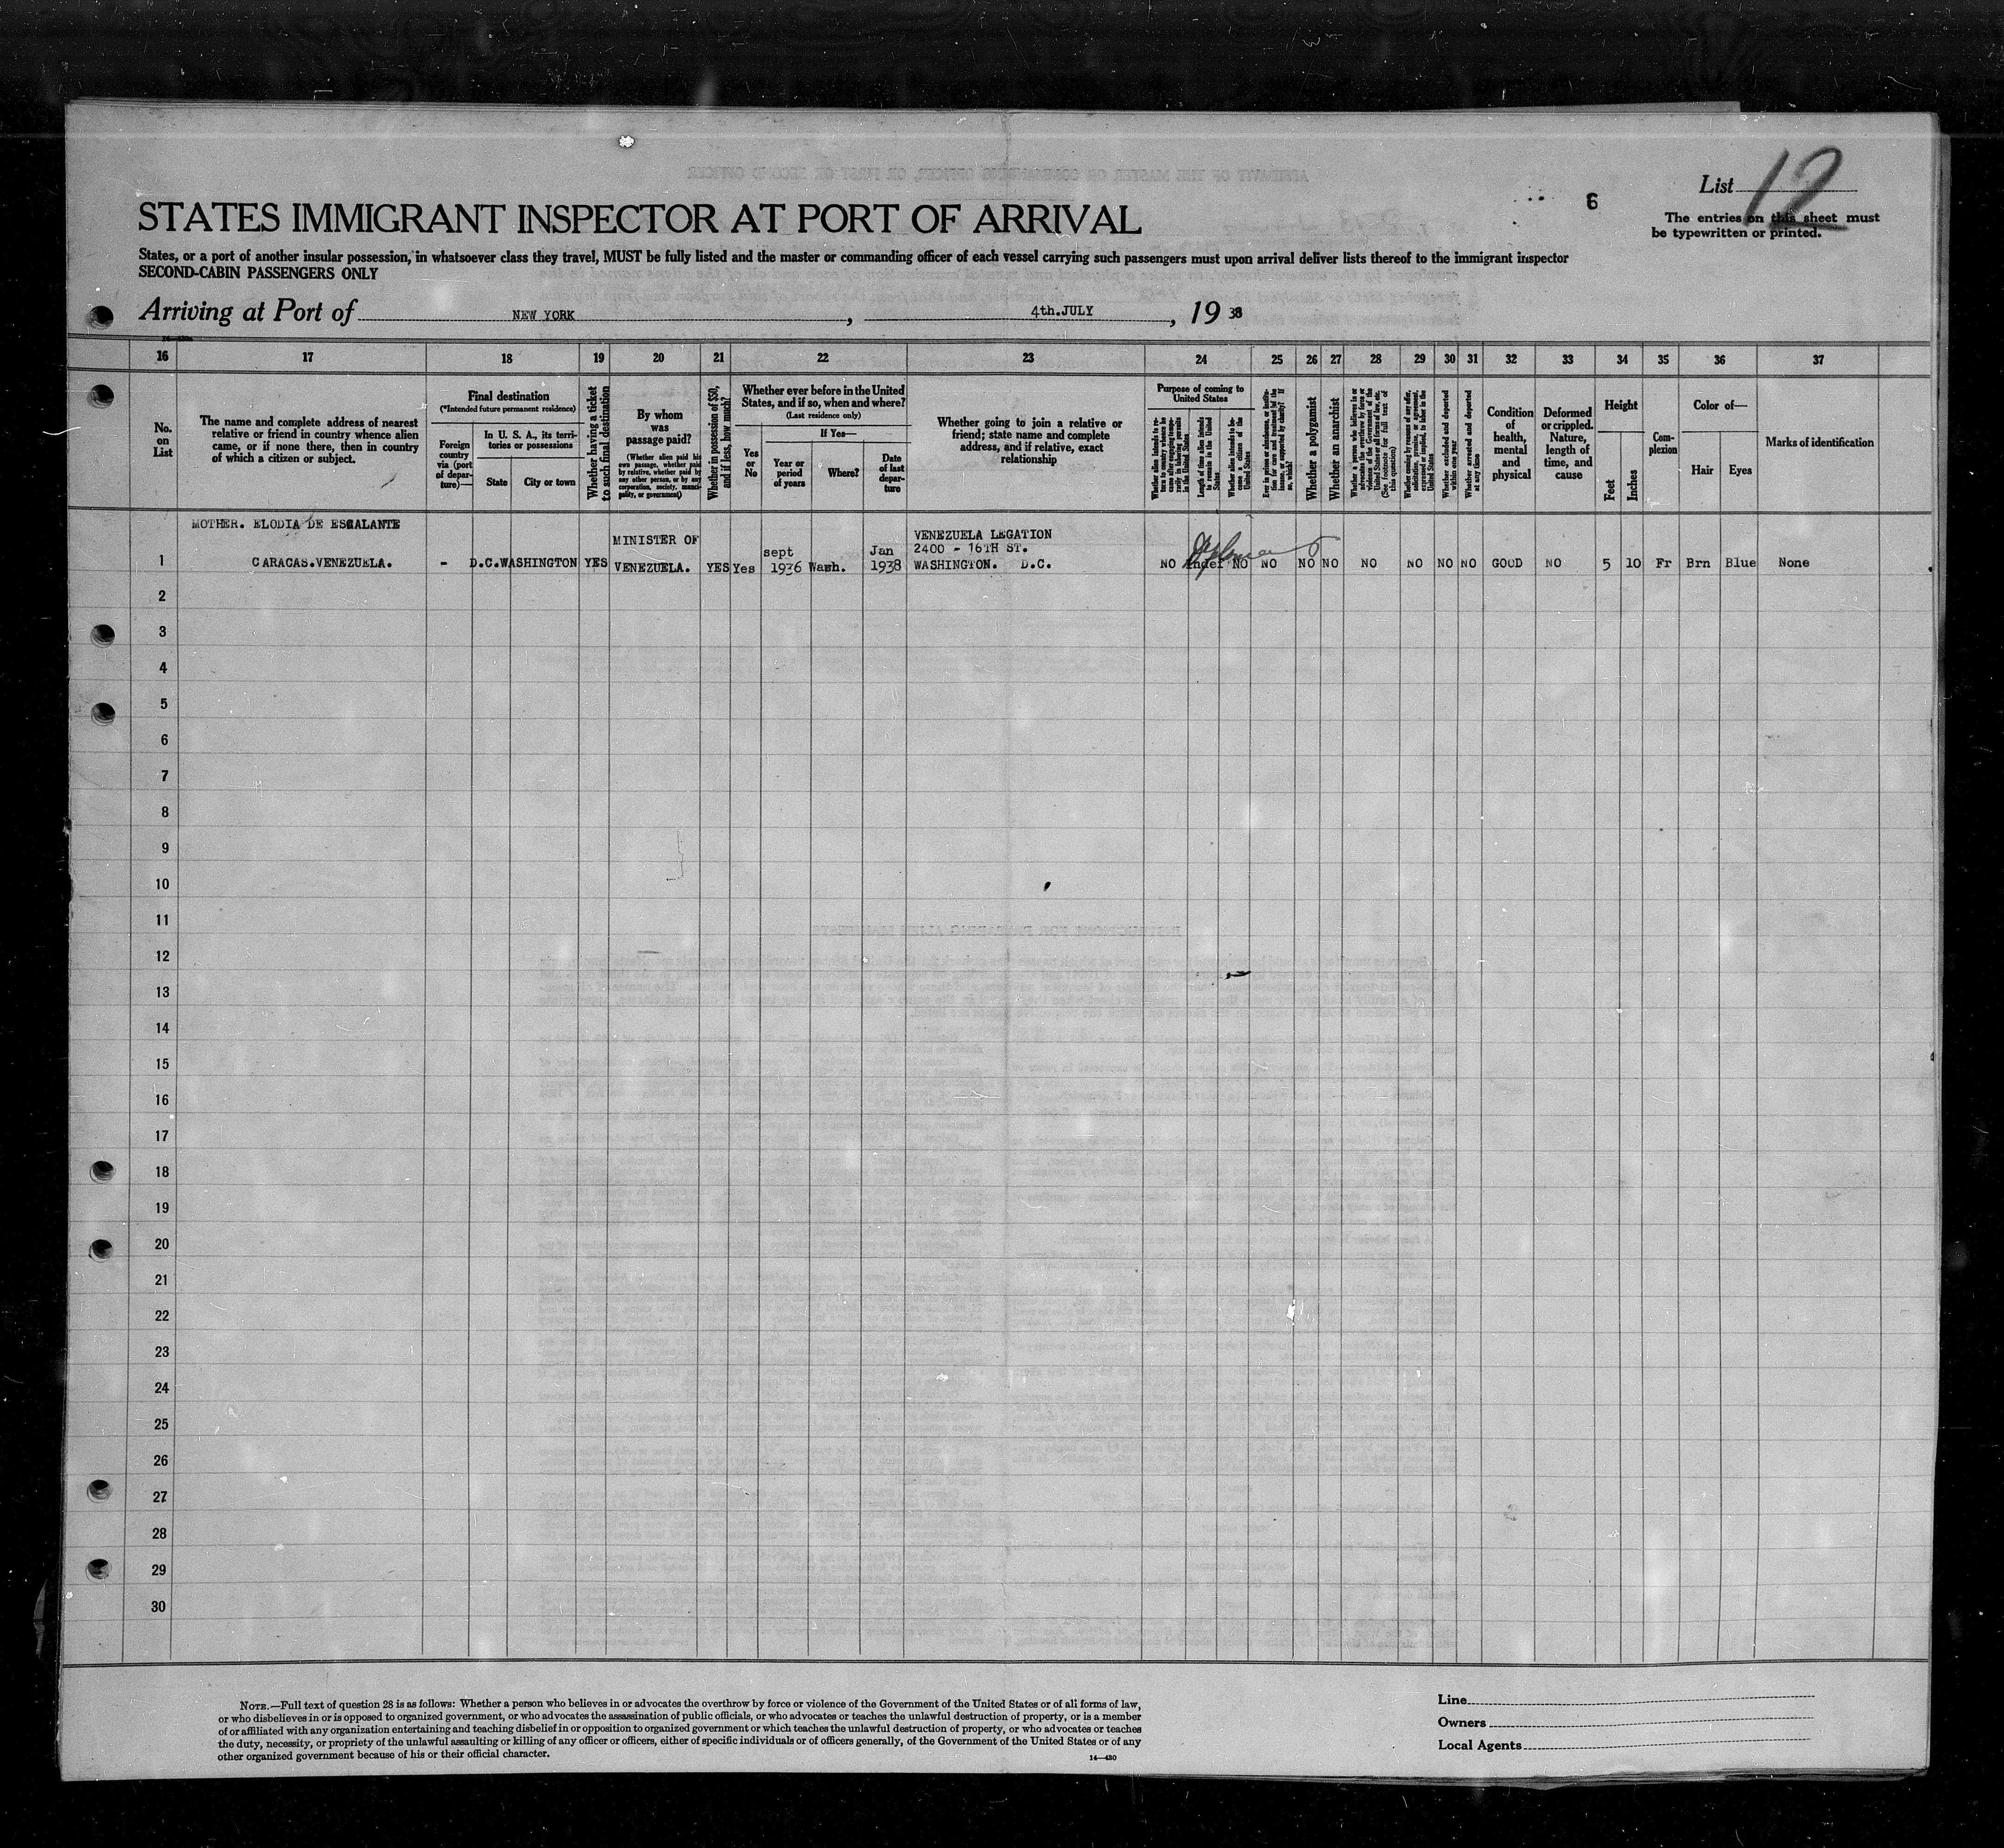 List 12
6
The entries on this sheet must
be typewritten or printed.
STATES IMMIGRANT INSPECTOR AT PORT OF ARRIVAL
States, or a port of another insular possession, in whatsoever class they travel, MUST be fully listed and the master or commanding officer of each vessel carrying such passengers must upon arrival deliver lists thereof to the immigrant inspector
SECOND-CABIN PASSENGERS ONLY
Arriving at Port of NEW YORK, 4th.JULY, 1938
16 17 18 19 20 21 22 23 24 25 26 27 28 29 30 31 32 33 34 35 36 37
No.
on
List
The name and complete address of nearest
relative or friend in country whence alien
came, or if none there, then in country
of which a citizen or subject.
Final destination
(*Intended future permanent residence)
Foreign
country
via (port
of depar-
ture)—
In U. S. A., its terri-
tories or possessions
State
City or town
Whether having a ticket
to such final destination
By whom
was
passage paid?
(Whether alien paid his
own passage, whether paid
by relative, whether paid by
any other person, or by any
corporation, society, munici-
pality, or government)
Whether in possession of $50,
and if less, how much?
Whether ever before in the United
States, and if so, when and where?
(Last residence only)
Yes
or
No
If Yes—
Year or
period
of years
Where?
Date
of last
depar-
ture
Whether going to join a relative or
friend; state name and complete
address, and if relative, exact
relationship
Purpose of coming to
United States
Whether alien intends to re-
turn to country whence he
came after engaging tempo-
rarily in laboring pursuits
in the United States
Length of time alien intends
to remain in the United
States
Whether alien intends to be-
come a citizen of the
United States
Ever in prison or almshouse, or institu-
tion for care and treatment of the
insane, or supported by charity? If
so, which?
Whether a polygamist
Whether an anarchist
Whether a person who believes in or
advocates the overthrow by force or
violence of the Government of the
United States or all forms of law, etc.
(See footnote for full text of
this question)
Whether coming by reason of any offer,
solicitation, promise, or agreement,
expressed or implied, to labor in the
United States
Whether excluded and deported
within one year
Whether arrested and deported
at any time
Condition
of
health,
mental
and
physical
Deformed
or crippled.
Nature,
length of
time, and
cause
Height
Feet
Inches
Com-
plexion
Color of—
Hair
Eyes
Marks of identification
MOTHER. ELODIA DE ESCALANTE
CARACAS.VENEZUELA.
1 - D.C. WASHINGTON YES
MINISTER OF
VENEZUELA.
YES Yes
sept
1936
Wash.
Jan
1938
VENEZUELA LEGATION
2400 - 16TH ST.
WASHINGTON. D.C.
NO Indef NO NO NO NO NO NO NO NO GOOD NO 5 10 Fr Brn Blue None
2
3
4
5
6
7
8
9
10
11
12
13
14
15
16
17
18
19
20
21
22
23
24
25
26
27
28
29
30
NOTE.—Full text of question 28 is as follows: Whether a person who believes in or advocates the overthrow by force or violence of the Government of the United States or of all forms of law,
or who disbelieves in or is opposed to organized government, or who advocates the assassination of public officials, or who advocates or teaches the unlawful destruction of property, or is a member
of or affiliated with any organization entertaining and teaching disbelief in or opposition to organized government or which teaches the unlawful destruction of property, or who advocates or teaches
the duty, necessity, or propriety of the unlawful assaulting or killing of any officer or officers, either of specific individuals or of officers generally, of the Government of the United States or of any
other organized government because of his or their official character.
14—430
Line
Owners
Local Agents